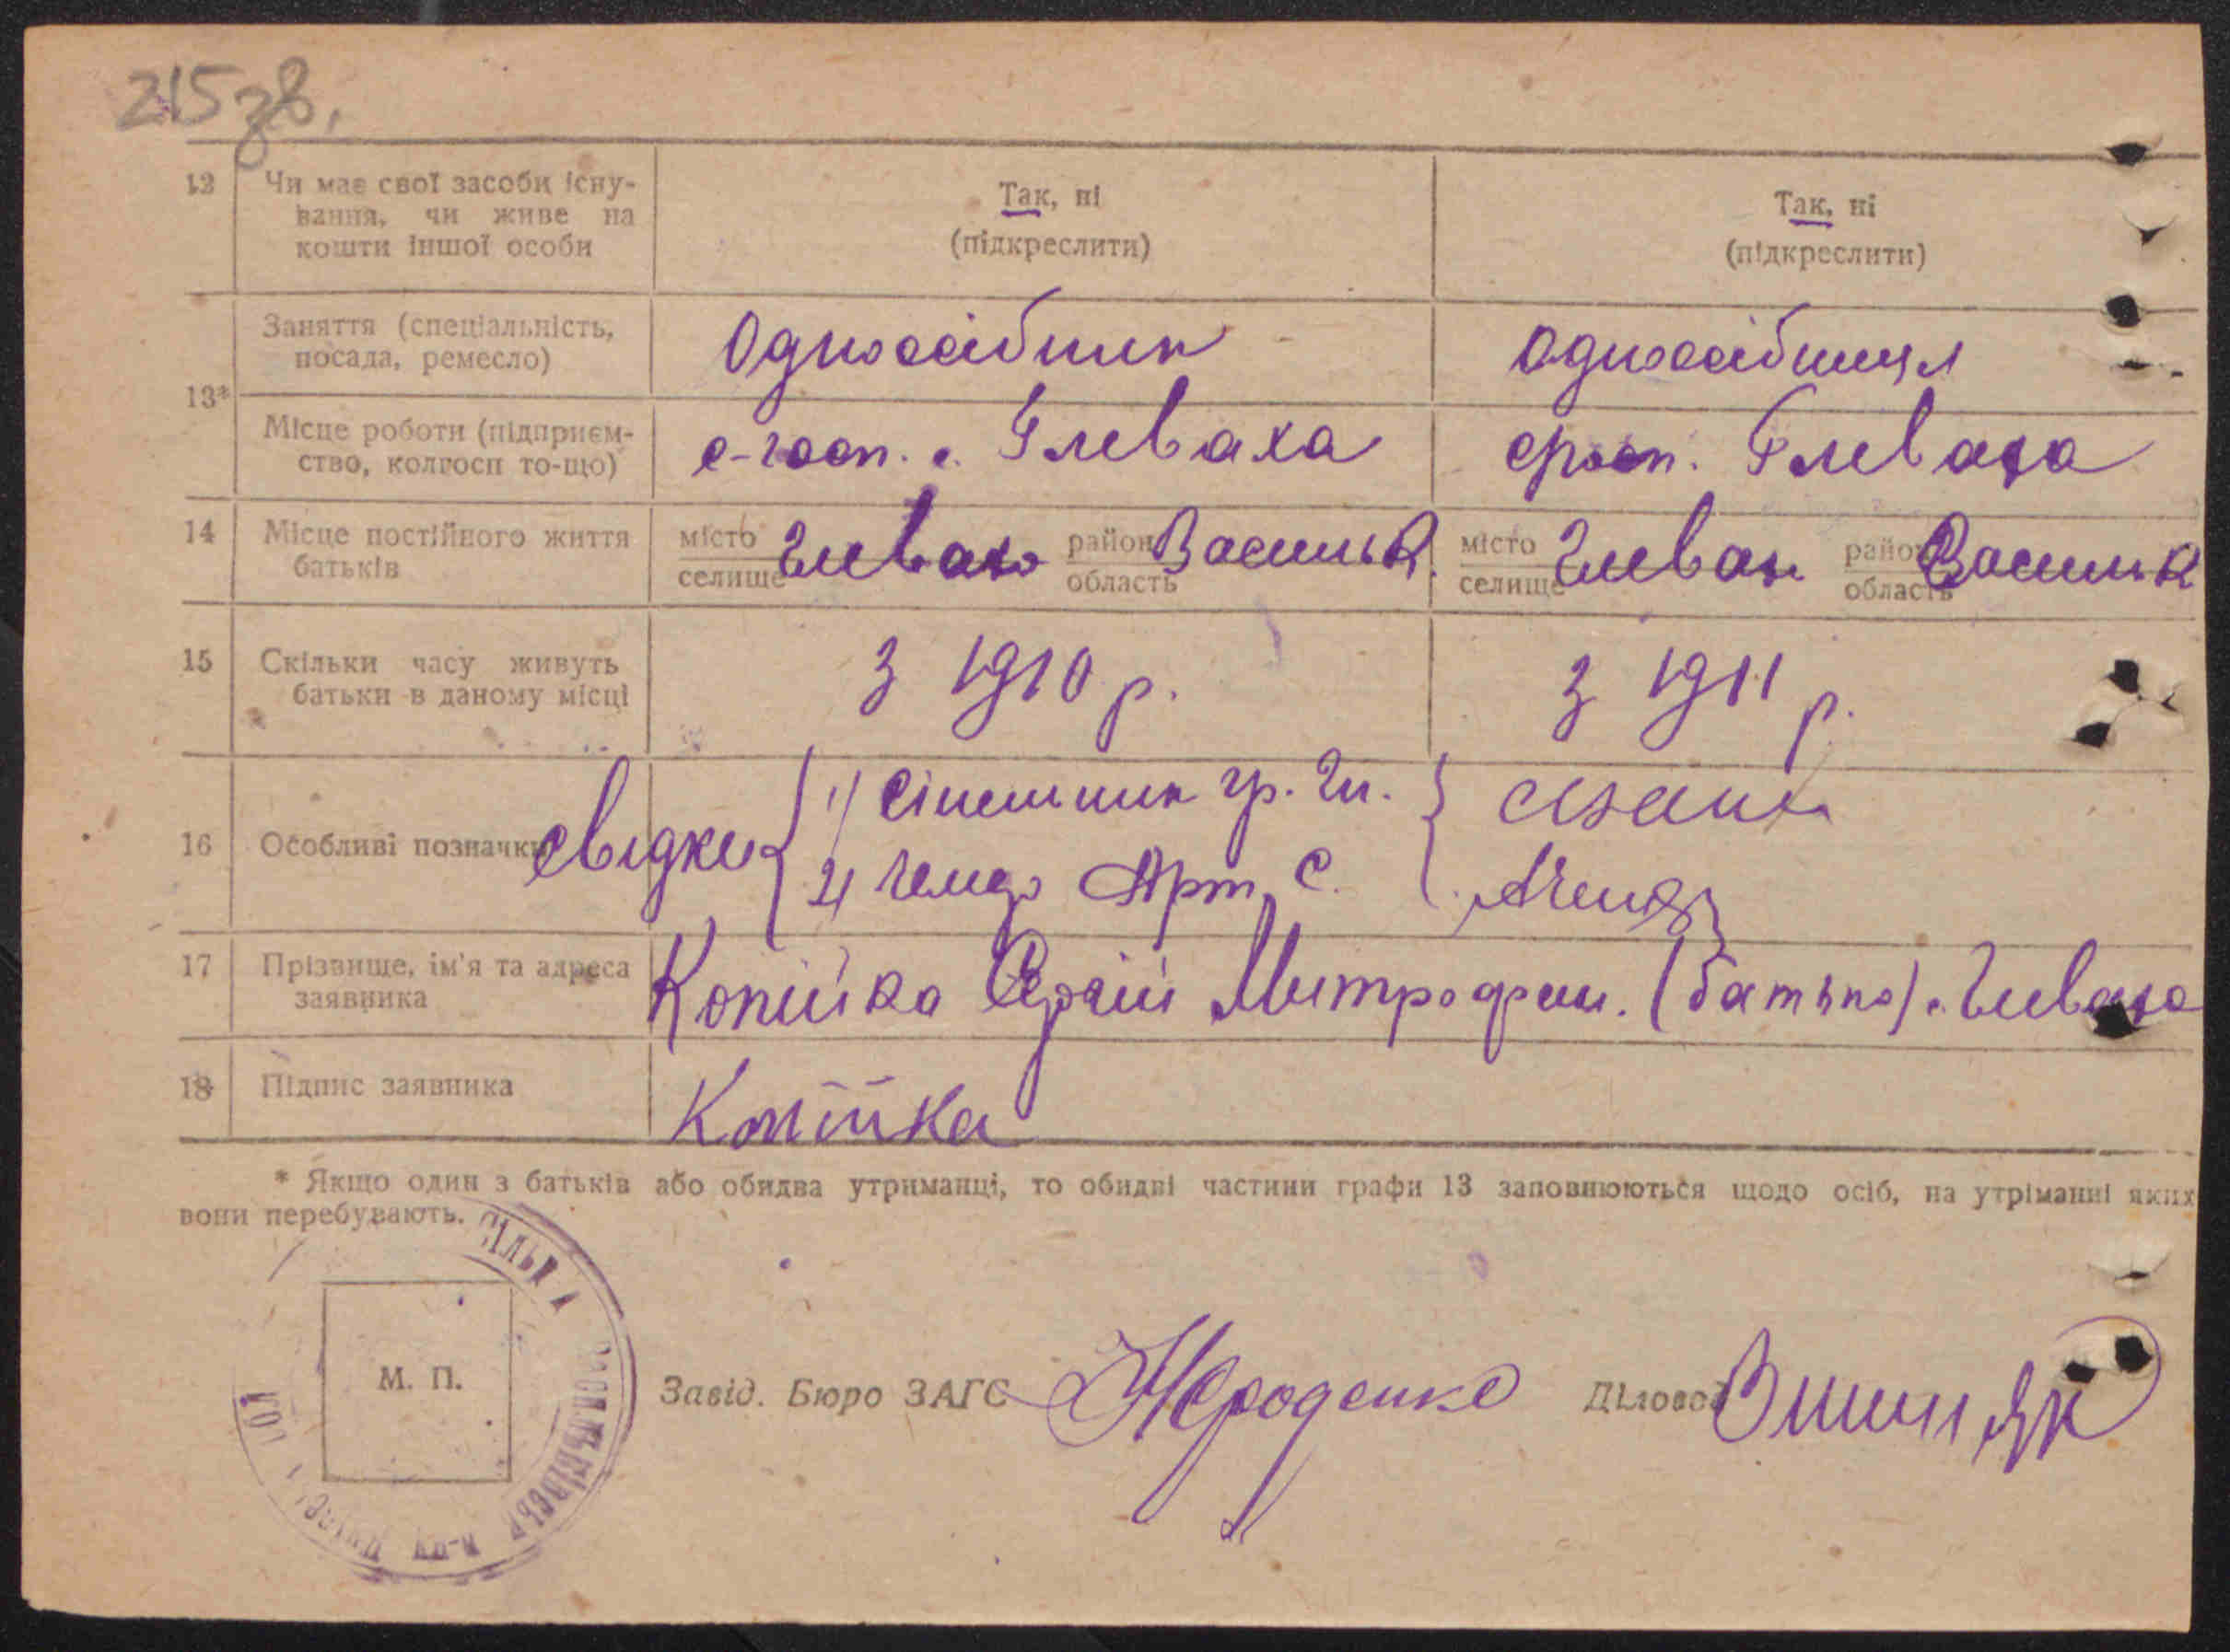 215 зв.
12 Чи має свої засоби існу-
вання, чи живе на
кошти іншої особи
Так, ні
(підкреслити)
Так, ні
(підкреслити)
13*
Заняття (спеціальність,
посада, ремесло)
Одноосібник
Одноосібниця
Місце роботи (підприєм-
ство, колгосп то-що)
с-госп. с. Глеваха
Глеваха
14 Місце постійного життя
батьків
місто
селище
Глеваха
район
область
Васильк.
місто
селище
Глеваха
район
область
Васильк
15 Скільки часу живуть
батьки в даному місці
З 1910 р.
З 1911 р.
16 Особливі позначки
свідки
1)
гр. Гл.
2)
Арт. С.
17 Прізвище, ім'я та адреса
заявника
Копійка Сергій Митрофан. (батько) с. Глеваха
18 Підпис заявника
Копійка
* Якщо один з батьків або обидва утриманці, то обидві частини графи 13 заповнюються щодо осіб, на утріманні яких
вони перебувають.
СІЛЬРАДА
М. П.
Завід. Бюро ЗАГС
Діловод